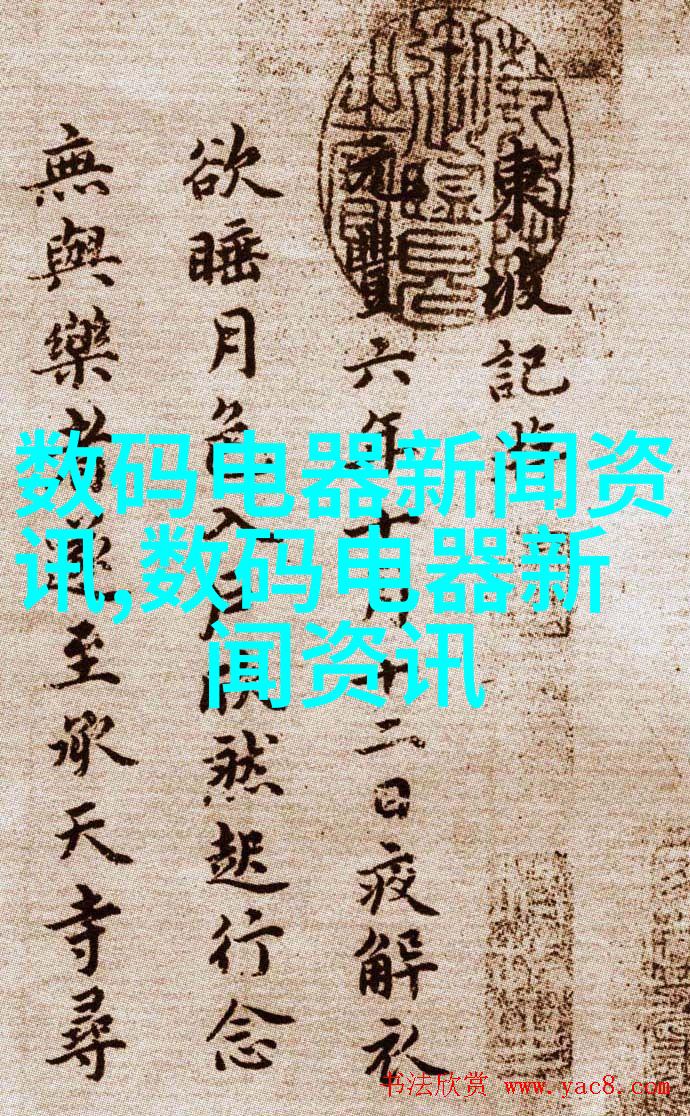 東坡記
元豐六年十月十二日夜解衣
欲睡月色入戶欣然起行念
無與樂者遂至承天寺尋
数码电器新闻资
讯,数码电器新
闻资讯
书法欣赏 www.yac8.com